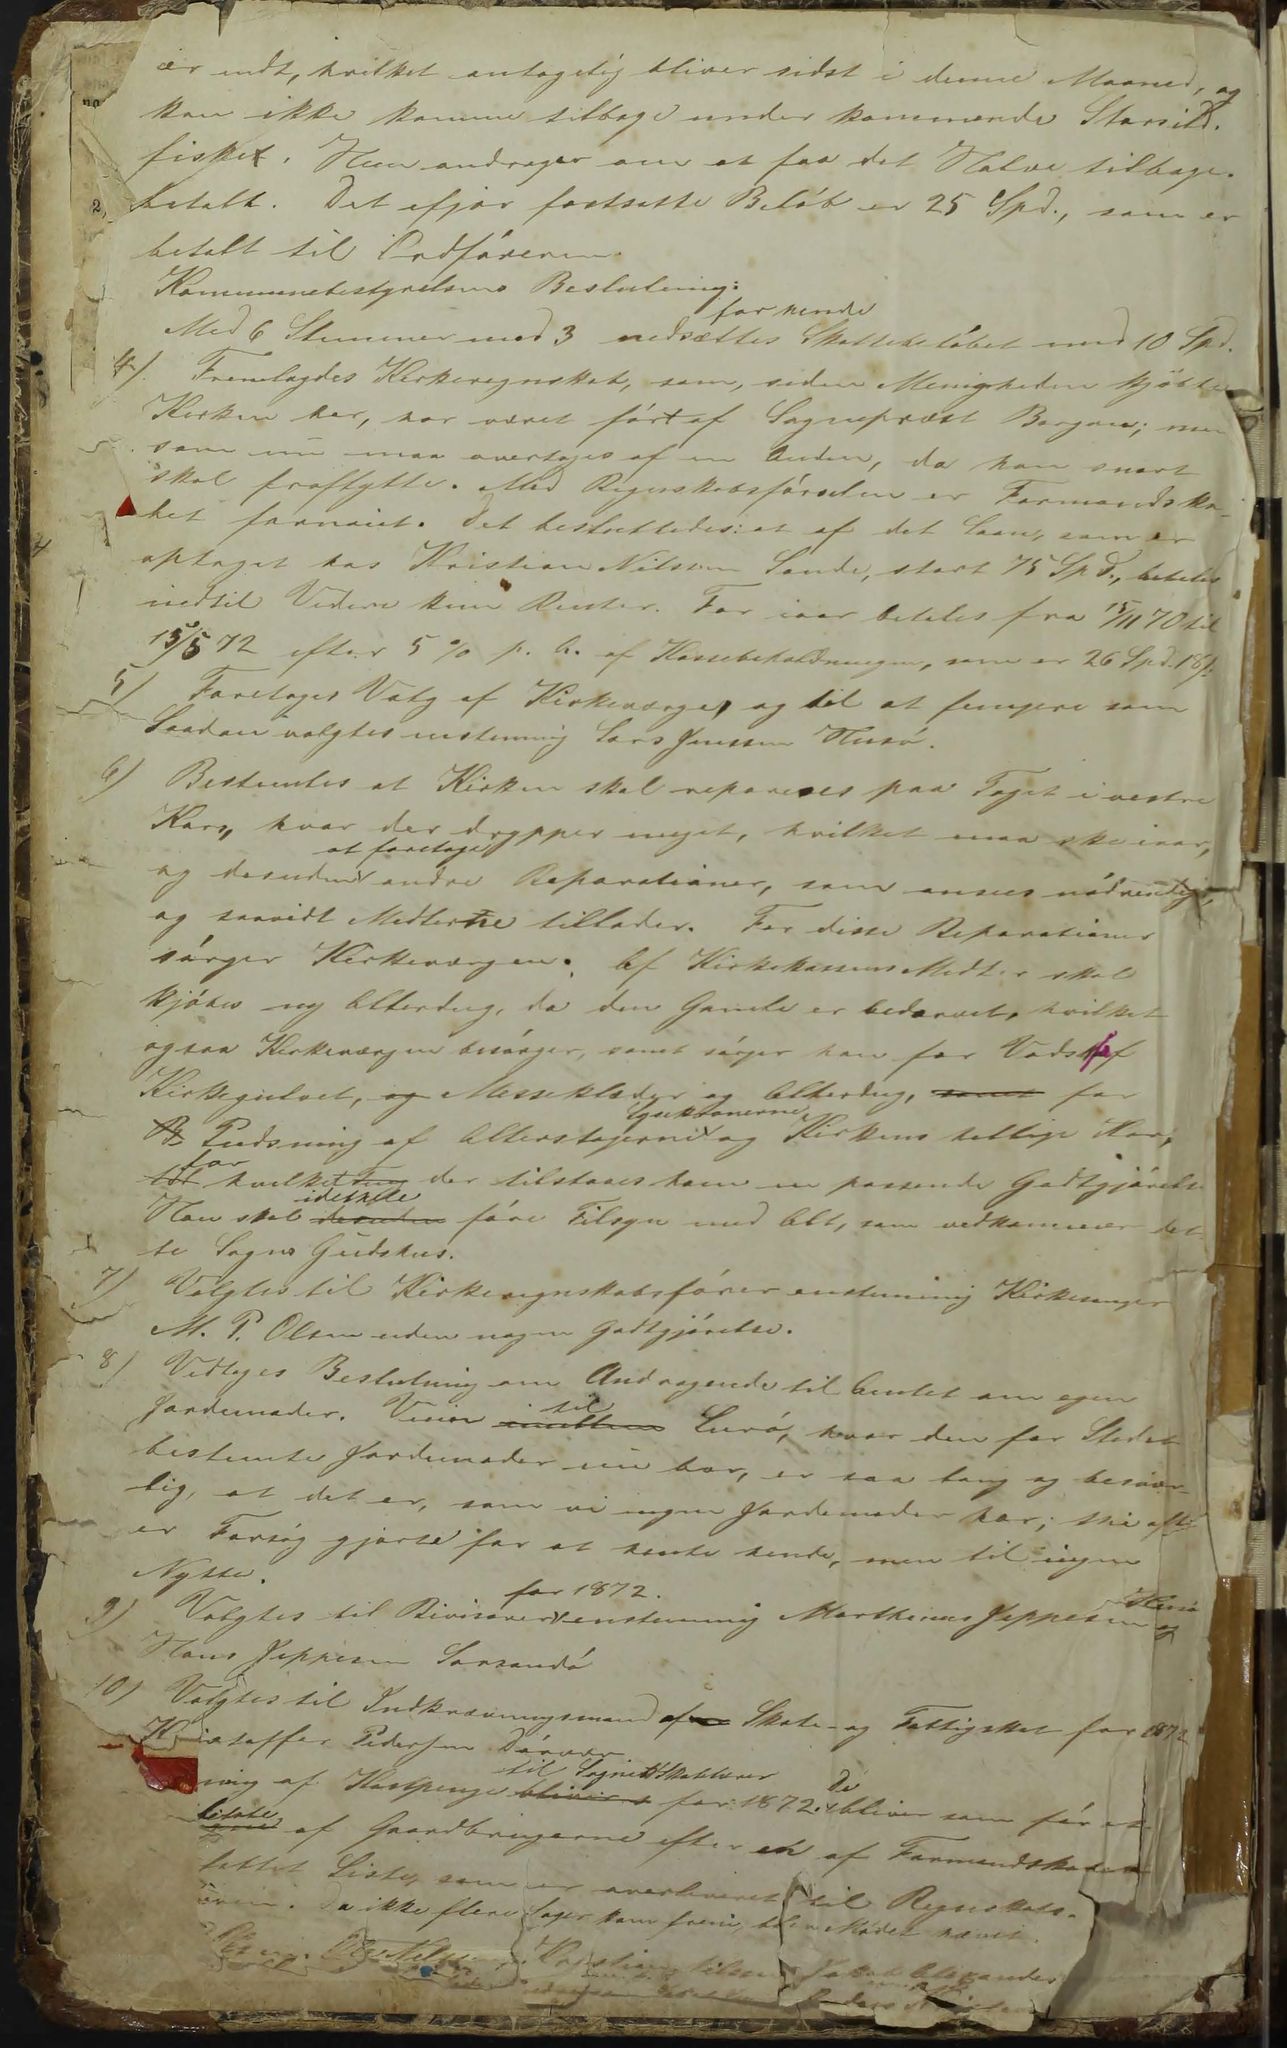 er endt, hvilket antagelig bliver sidst i denne Maaned, og
kan ikke komme tilbage under kommende Storsild-
fisket. Hun andrager om at faa det Halve tilbage-
betalt. Det ifjor fastsatte Beløb er 25 Spd., som er
betalt til Ordføreren.
Kommunebestyrelsens Beslutning:
Med 6 Stemmer mod 3 nedsættes for hende Skattebeløbet med 10 Spd.
4) Fremlagdes Kirkeregnskab, som, siden Menigheden kjøbte
Kirken her, har været ført af Sognepræst Borgen; men
som nu maa overtages af en Anden, da han snart
skal fraflytte. Med Regnskabsførselen er Formandska-
bet fornøiet. Det besluttedes: at af det Laan, som er
optaget hos Kristian Nilsen Sande, stort 75 Spd., betales
indtil Videre kun Renter. For iaar betales fra 15/11 70 til
15/5 72 efter 5 % p. a. af Kassebeholdningen, som er 26 Spd. 18 s.
5) Foretoges Valg af Kirkeværge, og til at fungere som
Saadan valgtes enstemmig Lars Jenssen Husø.
6) Bestemtes at Kirken skal repareres paa Taget i vestre
Kors, hvor der drypper meget, hvilket maa ske iaar,
og desuden at foretage andre Reparationer, som ansees nødvendige,
og saavidt Midlerne tillader. For disse Reparationer
sørger Kirkeværgen. Af Kirkekassens Midler skal
kjøbes ny Alterdug, da den Gamle er bedærvet, hvilket
ogsaa Kirkeværgen besørger, samt sørger han for Vadsk af
Kirkegulvet, og Messeklæder og Alterdug, samt for
Pudsning af Alterstagerne, Lysekronerne og Kirkens hellige Kar,
for hvilket der tilstaaes ham en passende Godtgjørelse
Han skal idethele desuden føre Tilsyn med Alt, som vedkommer det-
te Sogns Gudshus.
7) Valgtes til Kirkeregnskabsfører enstemmig Kirkesanger
M. P. Olsen uden nogen Godtgjørelse.
8) Vedtoges Beslutning om Andragende til Amtet om egen
Jordemoder. Veien imellem til Lurø, hvor den for Stedet
bestemte Jordemoder nu bor, er saa lang og besvær-
lig, at det er, som vi ingen Jordemoder har; thi ofte
er Forsøg gjorte for at hente hende, men til ingen
Nytte.
9) Valgtes til Revisorer for 1872 enstemmig Marthinus Jeppesen Husø og
Hans Jeppesen Sørsandø
10) Valgtes til Indkrævningsmand af Skole- og Fattigskat for 1872
Kristoffer Pedersen Dørvær
ning af Kostpenge til Sognets Skolelærer for 1872. De bliver som før at
betale af Gaardbrugerne efter en af Formandskabet
fattet Liste, som er overleveret til Regnskabs-
føreren. Da ikke flere Sager kom frem, blev Mødet hævet.
Ole Nilsen Kristian Nilsen Jakob Alexander